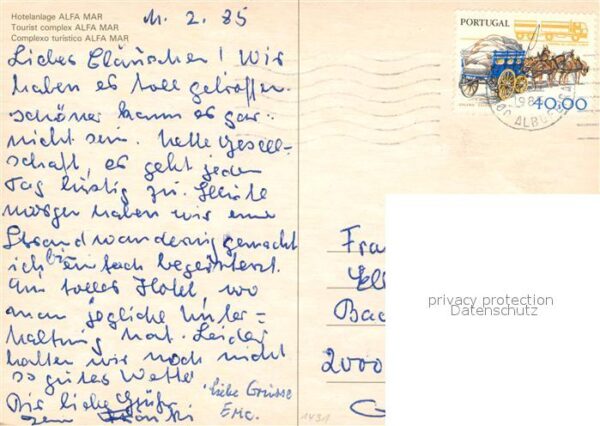 Hotelanlage ALFA MAR
Tourist complex ALFA MAR
Complexo turístico ALFA MAR
11. 2. 85
Liebes Cläuschen! Wir
haben es toll getroffen
schöner kann es gar
nicht sein. Nette Gesell-
schaft, es geht jeden
Tag lustig zu. Heute
morgen haben wir eine
Strandwanderung gemacht
ich bin einfach begeistert.
Ein tolles Hotel, wo
man jegliche Unter=
haltung hat. Leider
hatten wir noch nicht
so gutes Wetter
Dir liebe Grüße
Liebe Grüsse
PORTUGAL
40,00
Fra
Ell
Bad
2000
1431
privacy protection
Datenschutz